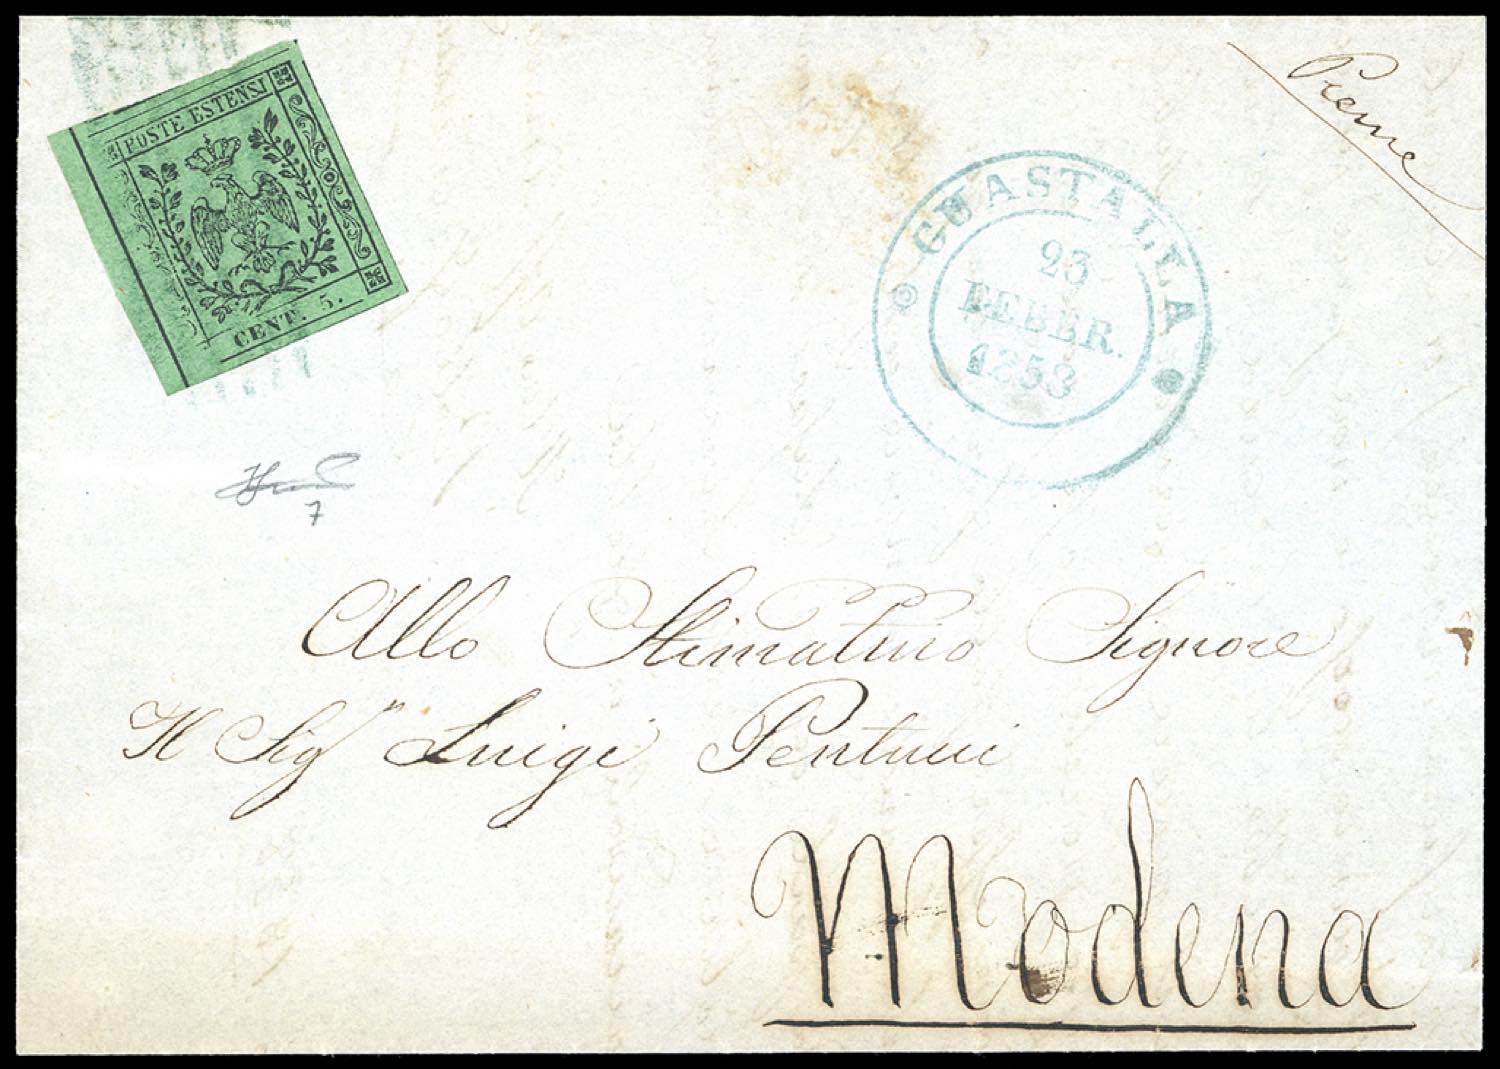 POSTE ESTENSI
CENT. 5.
GUASTALLA
23
FEBBR.
1853
7
Allo Stimatmo Signore
Il Sigr Luigi Pentucci
Modena